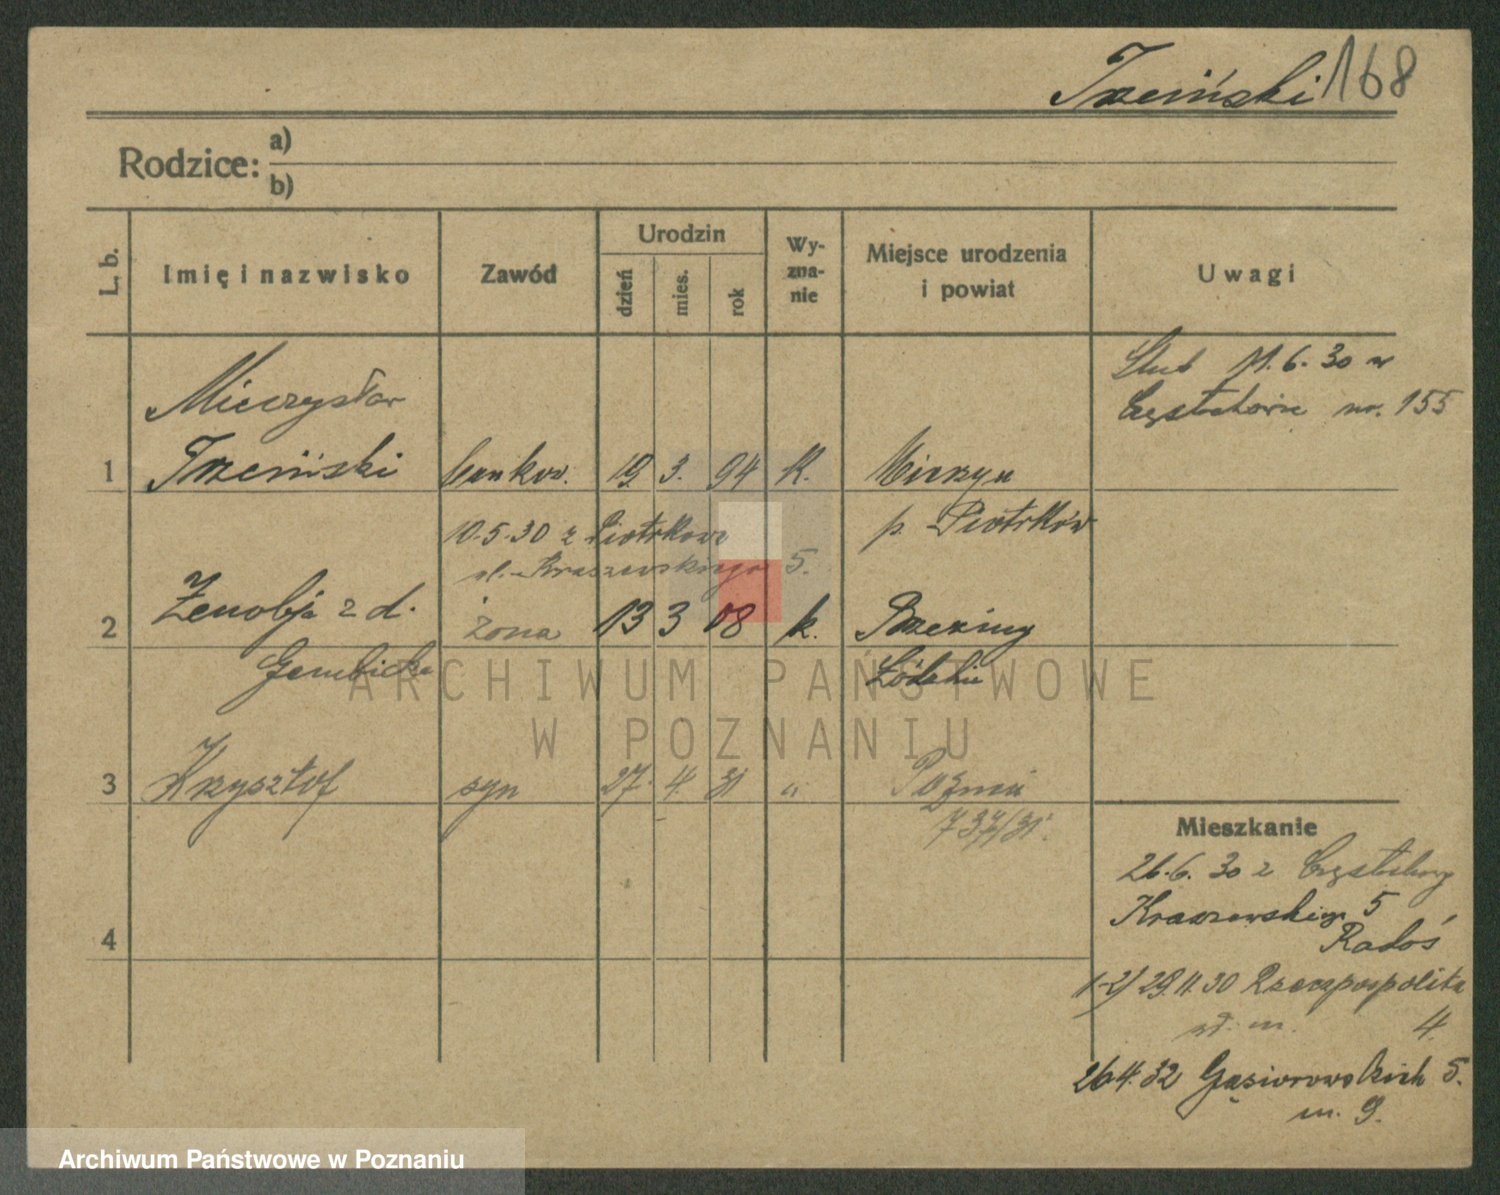 Trzciński 168
Rodzice: a)
b)
L. b.
Imię i nazwisko
Zawód
Urodzin
dzień
mies.
rok
Wy-
zna-
nie
Miejsce urodzenia
i powiat
Uwagi
Mieczysław
Ślub 11.6.30 w
Częstochowie nr. 155
1 Trzciński bankow. 19. 3. 94 K. Mierzyn
10.5.30 z Piotrkowa p. Piotrków
ul. Kraszewskiego 5.
2 Zenobja z d. żona 13 3 08 k. Brzeziny
Gembicka Łódzkie
3 Krzysztof syn 27. 4. 31 " Poznań
737/31.
4
Mieszkanie
26.6.30 z Częstochowy
Kraszewskiego 5
Radoś
1-2/ 29.11.30 Rzeczpospolita
wł. m. 4
26.4.32 Gąsiorowskich 5.
m. 9.
ARCHIWUM PAŃSTWOWE
W POZNANIU
Archiwum Państwowe w Poznaniu